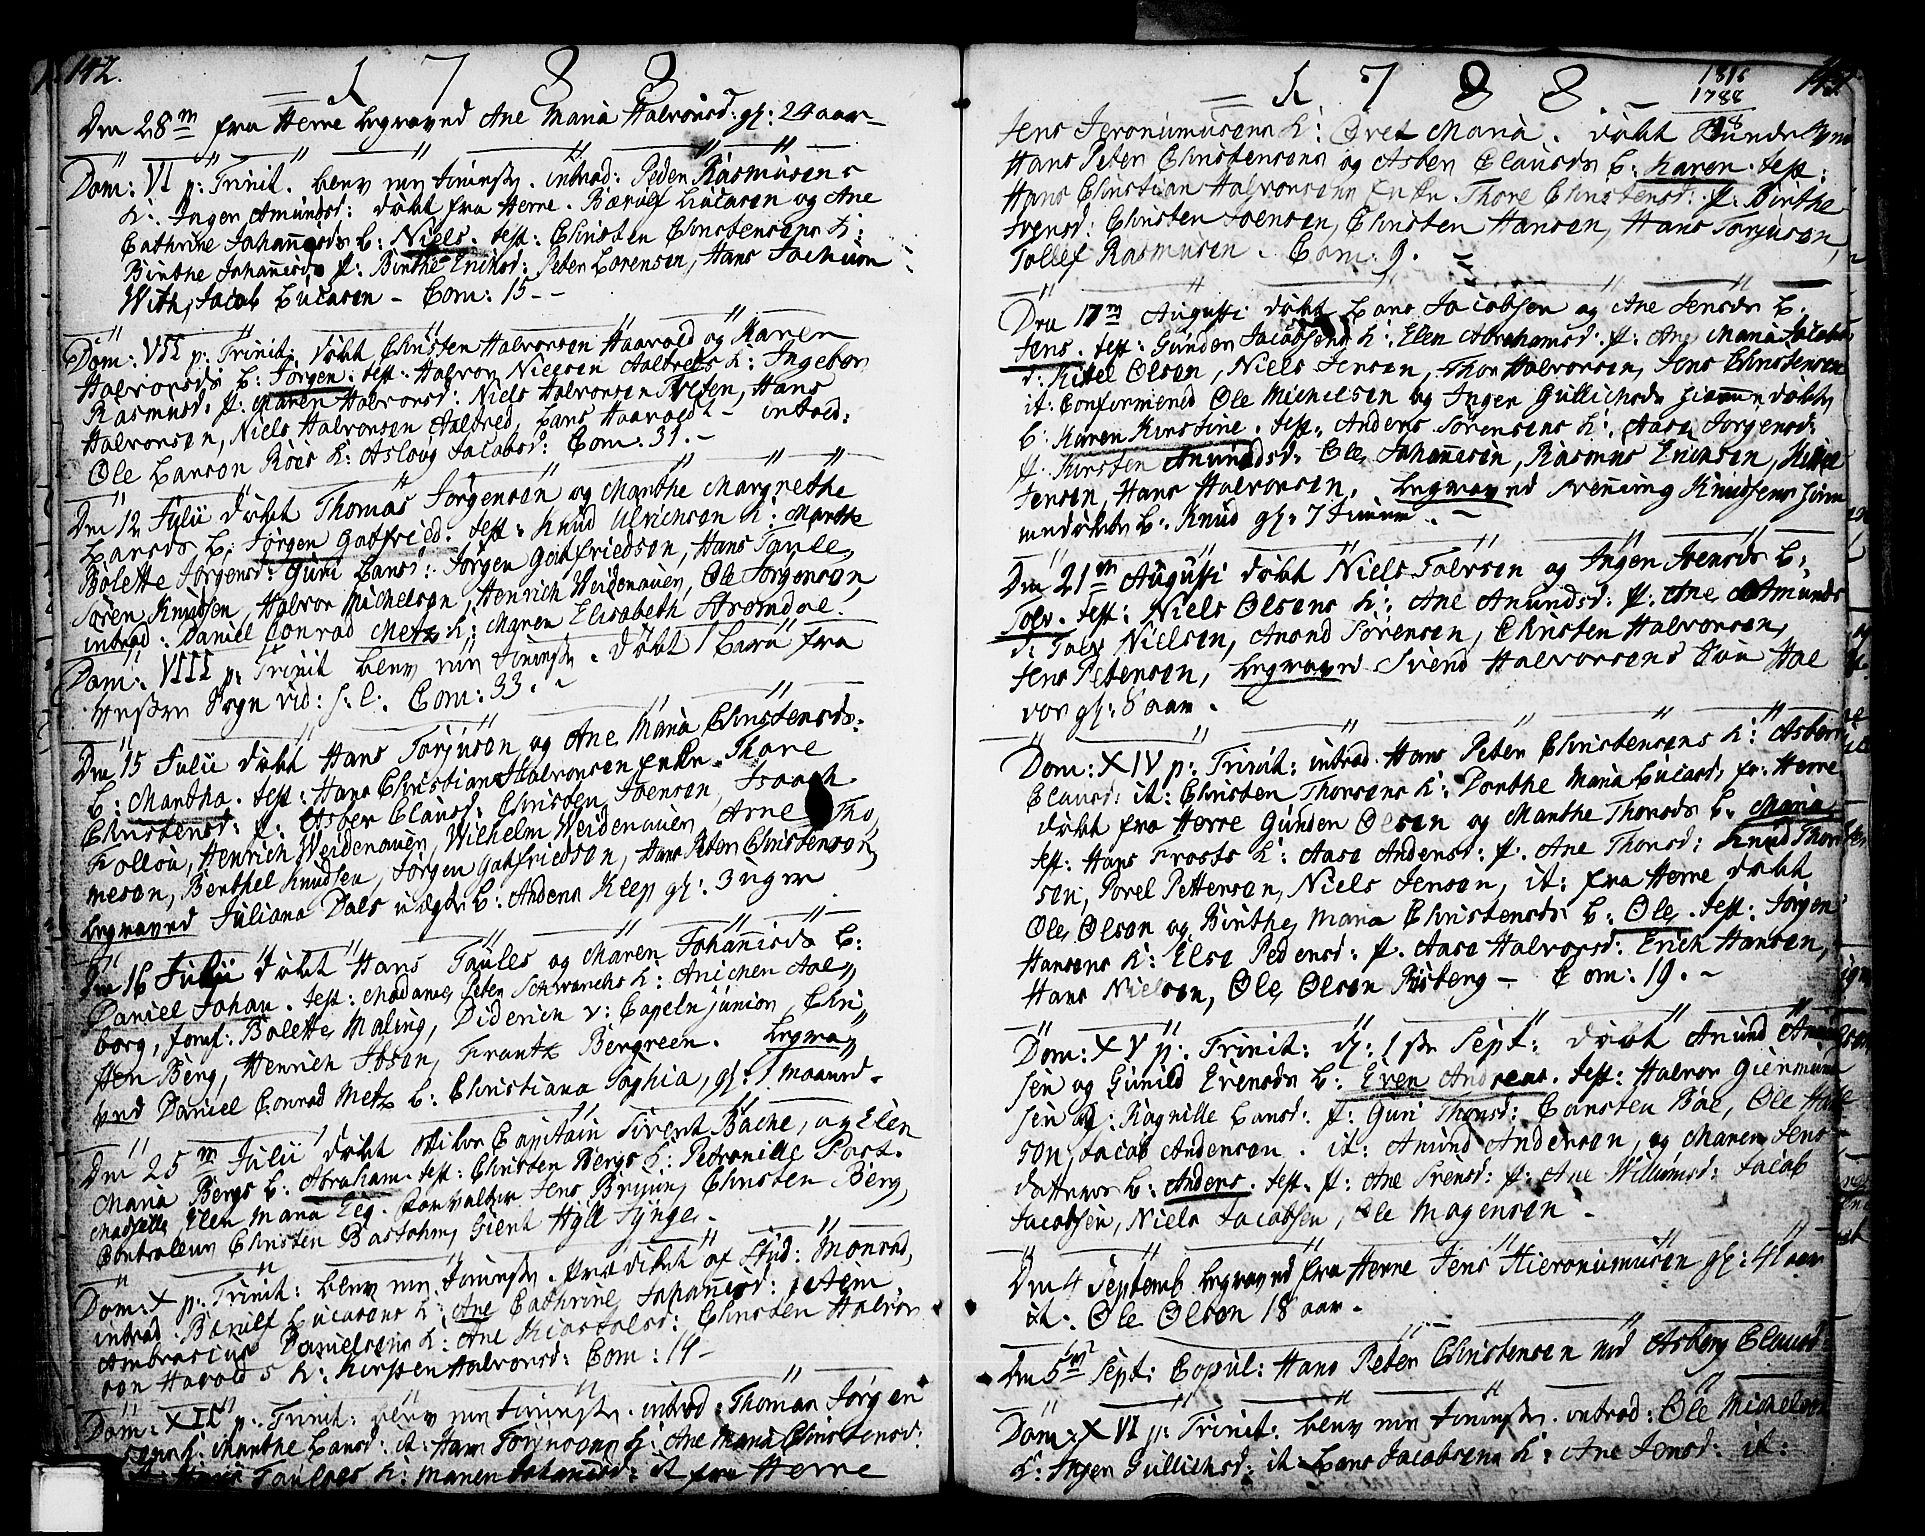 142.
1 7 8 8
Den 28m fra Herre begraved Ane Maria Halvorsd: gl: 24 aar
Dom: VI p: Trinit. intrad: Peder Rasmusens
K: Inger Amundsd: døbt fra Herre. Barulf Lucasen og Ane
Cathrine Johannisds b: Niels. test: Christen Christensens k:
Birthe Johanisds p: Birthe Ericsd: Peter Lorensen, Hans Jochum
With, Jacob Lucasen - Com: 15 - -
Dom: VII p: Trinit: døbt Christen Halvorsen Haavold og Karen
Halvorsds b: Jørgen. test: Halvor Nielsen Aaltreds k: Ingebor
Rasmusd: p: Maren Halvorsd: Niels Halvorsen Treten, Hans
Halvorsen, Niels Halvorsen Aaltred, Lars Haavoldt - intrad:
Ole Larsen Röes k: Asloug Jacobsd: Com: 31. -
Den 12 Julii døbt Thomas Jørgensen og Marthe Margrethe
Larsds b: Jørgen Gotfried. test: Knud Ulrichsen k: Marthe
Bolette Jørgensd: Guri Larsd: Jørgen Gotfriedsen, Hans Taule,
Søren Knudsen, Halvor Michelsen, Henrich Weidenauer, Ole Jørgensen
intrad: Daniel Conrad Metz k: Maren Elisabeth Strømdal.
Dom: VIII p: Trinit døbt 1 barn fra
Sogn vid: s. l. Com: 33. -
Den 15 Julii døbt Hans Torjusen og Ane Maria Christensds
b: Martha. test: Hans Christian Halvorsen Enke Thore
Christensd: p: Asber Clausd: Christen Joensen, Isaach
Kollou, Henrich Weidenauer, Wilhelm Weidenauer, Arne Tho,
mesen, Berthel Knudsen, Jørgen Gotfriedsen, Hans Peter Christensen
begraved Juliana Dals uægte b: Anders Kleep gl: 3 uger
Den 16 Julii døbt Hans Taules og Maren Johannisds b:
Daniel Johan. test: Madame Peter Schwenchs k: Anichen Aal,,
borg, Jomf: Bolette Maling, Diderich v: Capeln junior, Chri,,
sten Berg, Henrich Ibsen, Frantz Bergreen. begra,,
ved Daniel Conrad Metz b: Christiana Sophia, gl: 1 maaned -
Den 25m Julii døbt Capitain Sivert Bache, og Elen
Maria Bergs b: Abraham. test: Christen Bergs k: Petronille Post.
Madselle Elen Maria Eeg. Forvalter Jens Bruun, Christen Berg,
Controlleur Christen Bastholm, Giert Hyll Synge -
Dom: X p: Trinit: Prædiket af Stud: Monrad,
intrad: Barulf Lucasens k: Ane Cathrine Johannisd: item
Ambrosius Danielsens k: Ane Kirstoldsd: Christen Halvor
sen Havolds k: Kirsten Halvorsd: Com: 14 -
Dom: XII p: Trinit: intrad: Thomas Jørgen
sens k: Marthe Larsd: it: Hans Torjusens k: Ane Maria Christensd:
it: Hans Taules k: Maren Johanisd: it fra Herre
1 7 8 8. -
1816
1788
28
143
Jens Jeronimusens k: Bret Maria. døbt
Hans Peter Christensens og Asber Clausds b: Karen. test:
Hans Christian Halvorsens Enke Thore Christensd: p: Birthe
Svensd: Christen Joensen, Christen Hansen, Hans Torjusen,
Tollef Rasmusen. Com: 9. -
Den 17m Augusti døbt Lars Jacobsen og Ane Jensds b:
Jens. test: Gunder Jacobsens k: Elen Abrahamsd: p: Ane Maria Jacobs
d: Kitel Olsen, Niels Jensen, Thor Halvorsen, Jens Christensen
it: Confirmered Ole Michelsen og Inger Gullichsds hiemmedøbte
b: Karen Kirstine. test: Anders Sørensens k: Aase Jørgensd:
p: Kirsten Amundsd: Ole Johanesen, Rasmus Ericksen, Kittel
Jensen, Hans Halvorsen. begraved Svenning Knudsens hiem
medøbte b: Knud gl: 7 Timer. -
Den 21m Augusti døbt Niels Tolvsen og Inger Ivensds b:
Tolv. test: Niels Olsens k: Ane Amundsd: p: Ane Amunds
d: Tolv Nielsen, Amond Sørensen, Christen Halvorsen,
Jens Petersen, begraved Svend Halvorsens Søn Hal
vor gl: 8 aar. -
Dom: XIV p: Trinit: intrad. Hans Peter Christensens k: Asber
Clausd: it: Christen Thorsens k: Dorthe Maria Lucasd: fr: Herre
døbt fra Herre Gunder Olsen og Marthe Thorsds b: Maria
test: Hans Frosts k: Aase Andersd: p. Ane Thorsd: Knud Thor
sen, Povel Pettersen, Niels Jensen, it: fra Herre døbt
Ole Olsen og Birthe Maria Christensds b: Ole. test: Jørgen
Hansens k: Else Pedersd: p. Aase Halvorsd: Erich Hansen,
Hans Nielsen, Ole Olsen Risberg - Com: 19. -
Dom: XV p: Trinit: d: 1ste Sept: døbt Anund
sen og Gunild Evensds b: Even Andreas. test: Halvor Giermund
sen k: Ragnille Larsd: p: Guri Thorsd: Carsten Bae, Ole
son, Jacob Andersen. it: Amund Andersen, og Maren Jens
datters b: Anders. test: p: Ane Svensd: p: Ane Williumsd: Jacob
Jacobsen, Niels Jacobsen, Ole Mogensen -
Den 4 Septemb begraved fra Herre Jens Hieronimusen gl: 41 aar
it: Ole Olsen 18 aar -
Den 5m Sept: Copul: Hans Peter Christensen med Asberg Clausd:
Dom: XVI p: Trinit: intrad: Ole Michels
k: Inger Gullichsd: it Lars Jacobsens k: Ane Jensd: it: